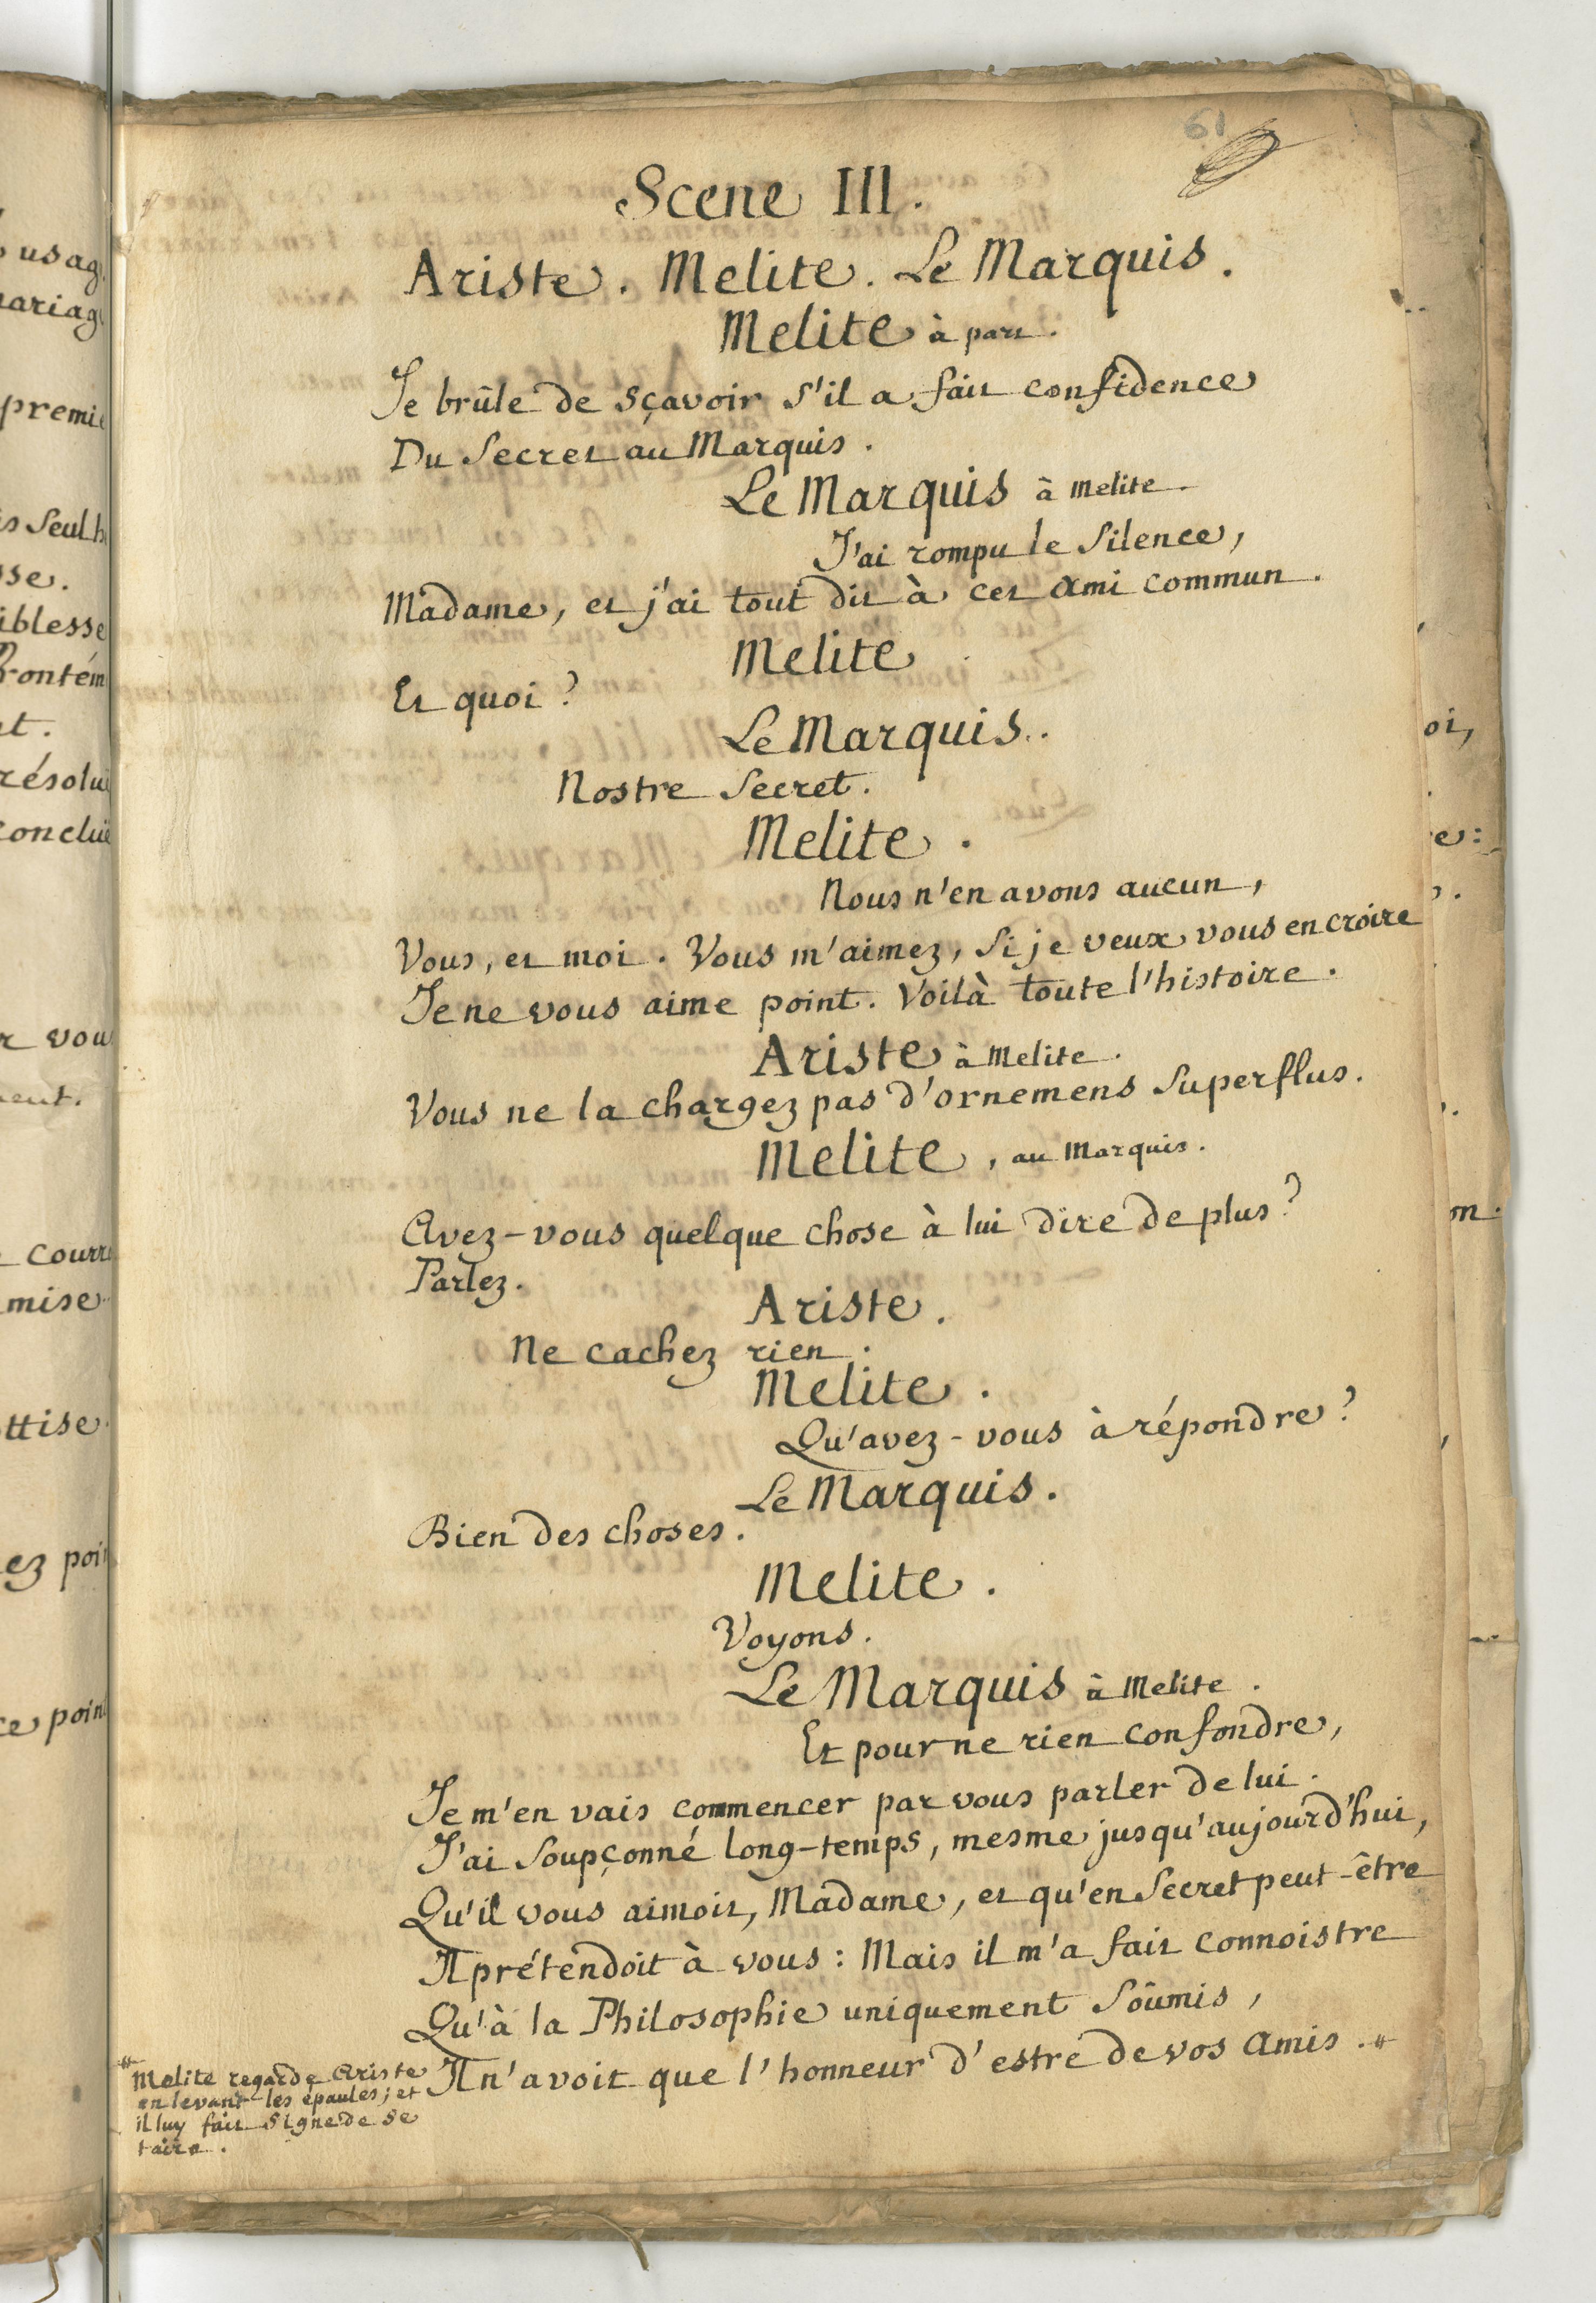 61
Scene III.
Ariste. Melite. Le Marquis.
Melite à part.
Je brûle de sçavoir s'il a fait confidence
Du Secret au Marquis.
Le Marquis à Melite.
J'ai rompu le Silence,
Madame, et j'ai tout dit à cet Ami commun.
Melite
Et quoi?
Le Marquis.
Nostre Secret.
Melite.
Nous n'en avons aucun,
Vous, et moi. Vous m'aimez, Si je veux vous en croire
Je ne vous aime point. Voilà toute l'histoire.
Ariste à Melite.
Vous ne la chargez pas d'ornemens Superflus.
Melite, au Marquis.
Avez-vous quelque chose à lui dire de plus?
Parlez.
Ariste.
Ne cachez rien.
Melite.
Qu'avez-vous à répondre?
Le Marquis.
Bien des choses.
Melite.
Voyons.
Le Marquis à Melite.
Et pour ne rien confondre,
Je m'en vais commencer par vous parler de lui.
J'ai Soupçonné long-temps, mesme jusqu'aujourd'hui,
Qu'il vous aimoit, Madame, et qu'en Secret peut-être
Il prétendoit à vous: Mais il m'a fait connoistre
Qu'à la Philosophie uniquement Soûmis,
Il n'avoit que l'honneur d'estre de vos Amis.
Melite regarde Ariste
en levant les épaules; et
il luy fait Signe de se
taire.
usag
mariag
premie
Seul h
sse.
iblesse
ront ém
nt.
résolu
conclu
vou
ment.
courr
mise
ttise
ez poin
ce poin
oi,
e:
on.